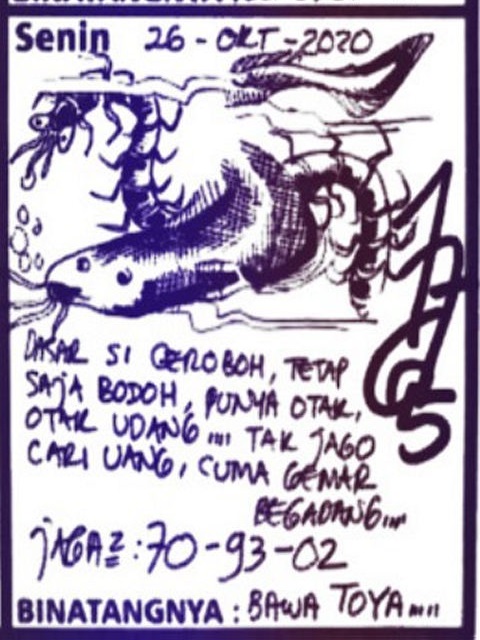 Senin 26-OKT-2020
DASAR SI CEROBOH, TETAP
SAJA BODOH, PUNYA OTAK,
OTAK UDANG.... TAK JAGO
CARI UANG, CUMA GEMAR
BEGADANG....
JAGA2 : 70-93-02
BINATANGNYA : BAWA TOYA....